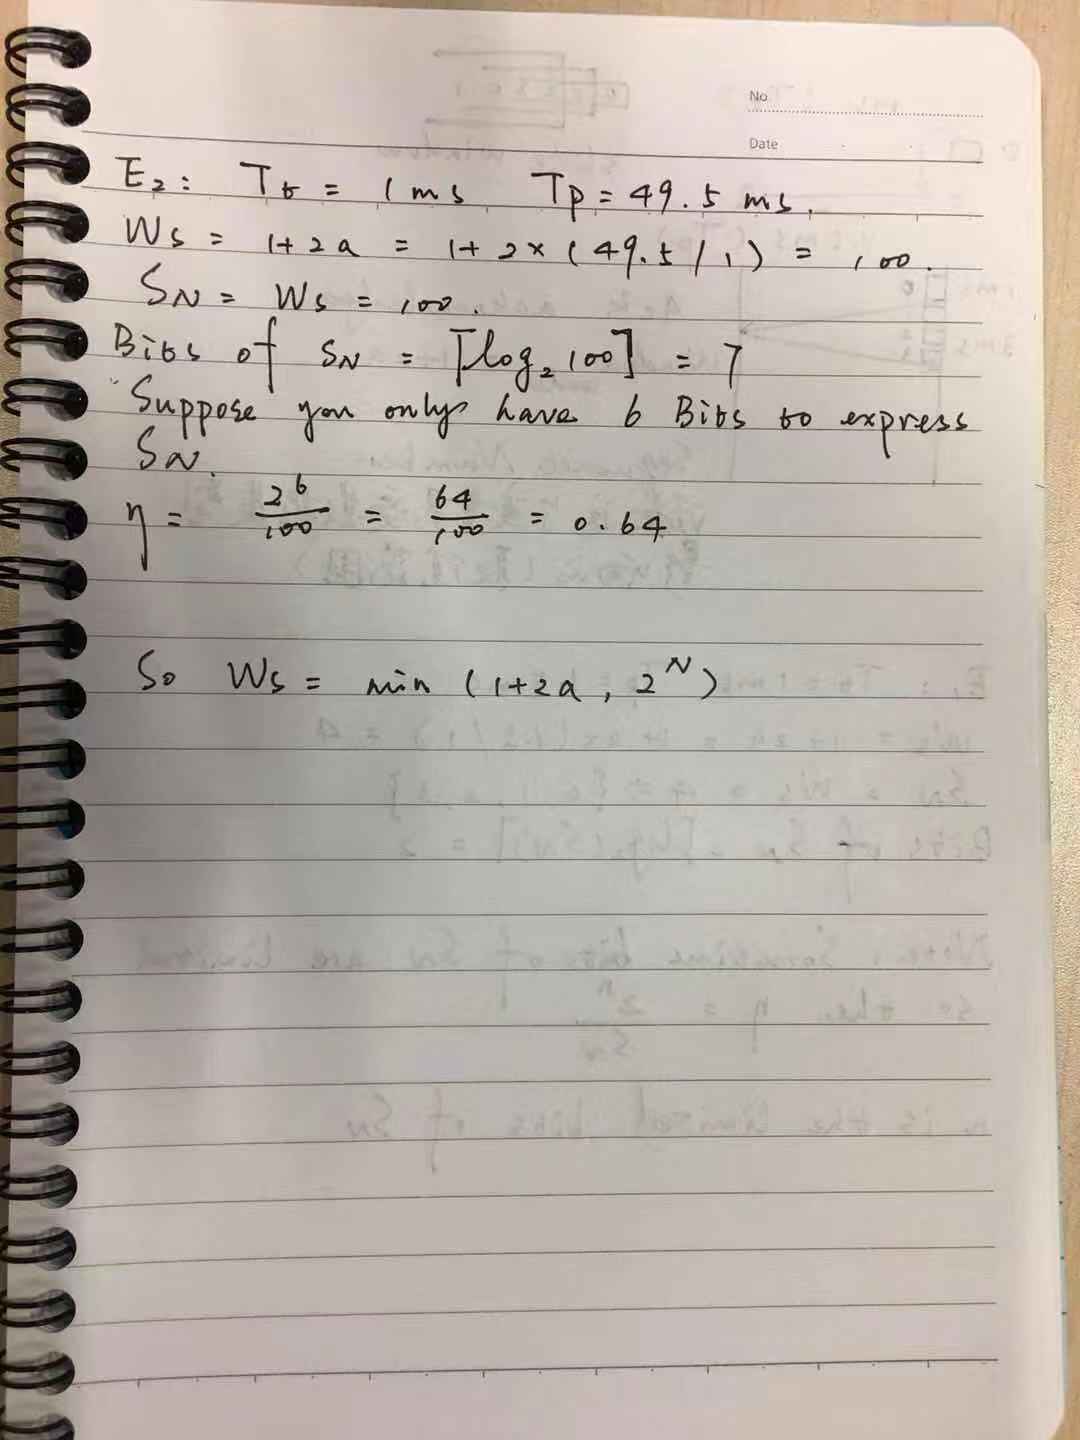 No
Date
E2: Tt = 1ms Tp = 49.5 ms.
Ws = 1+2a = 1+2×(49.5/1) = 100.
SN = Ws = 100.
Bits of SN = ⌈log₂100⌉ = 7
Suppose you only have 6 Bits to express
SN.
η = 2^6/100 = 64/100 = 0.64
So Ws = min (1+2a, 2^N)